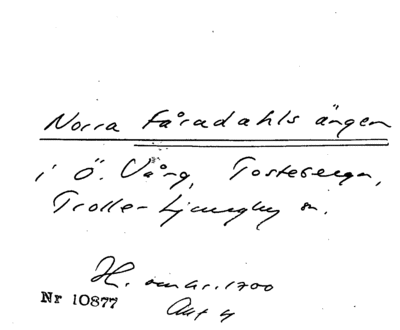 Norra Fåradahls ängen
i Ö. Vång, Tosteberga,
Trolle-Ljungby sn.
H. omkr. 1700
Nr 10877
Akt 4